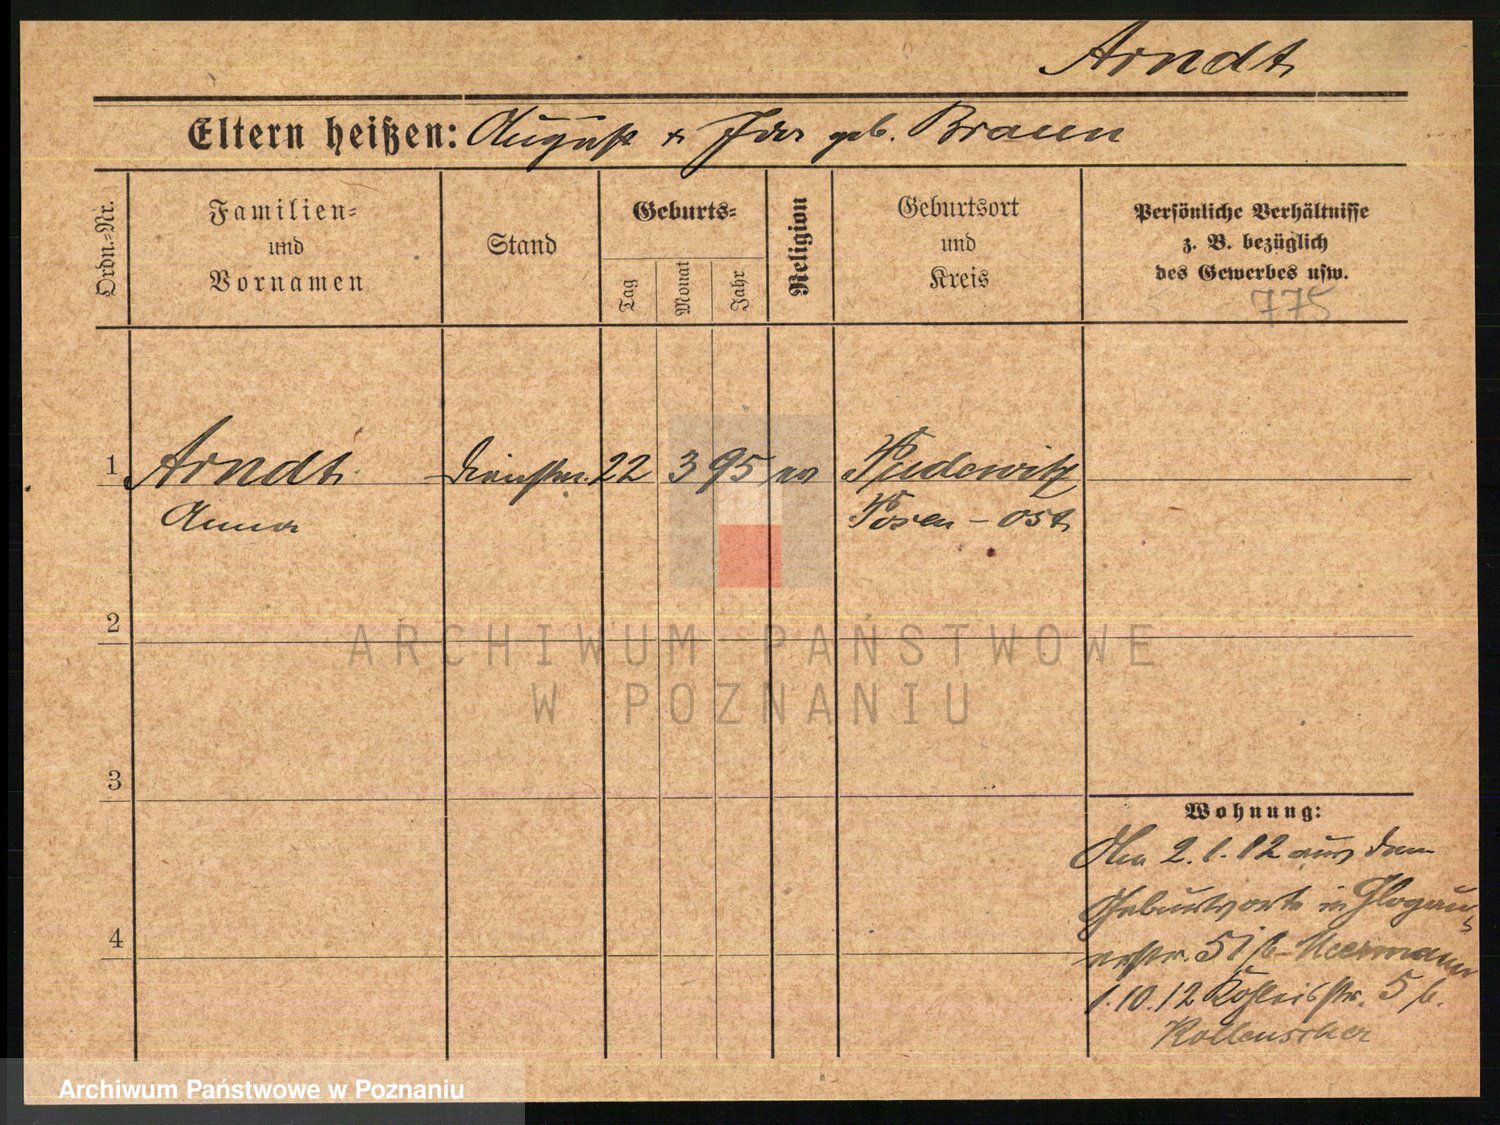 Arndt
Eltern heißen: August + Ida geb. Braun
Ordn.-Nr.
Familien-
und
Vornamen
Stand
Geburts-
Tag
Monat
Jahr
Religion
Geburtsort
und
Kreis
Persönliche Verhältnisse
z. B. bezüglich
des Gewerbes usw.
775
1 Arndt 22 3 95 ev Pudewitz
Anna Posen - Ost
2
ARCHIWUM PAŃSTWOWE
W POZNANIU
3
Wohnung:
2.1.12 aus dem
4
Geburtsorte in Glogau-
erstr. 51 b. Meermann
1.10.12 5 b.
Kollenscher
Archiwum Państwowe w Poznaniu